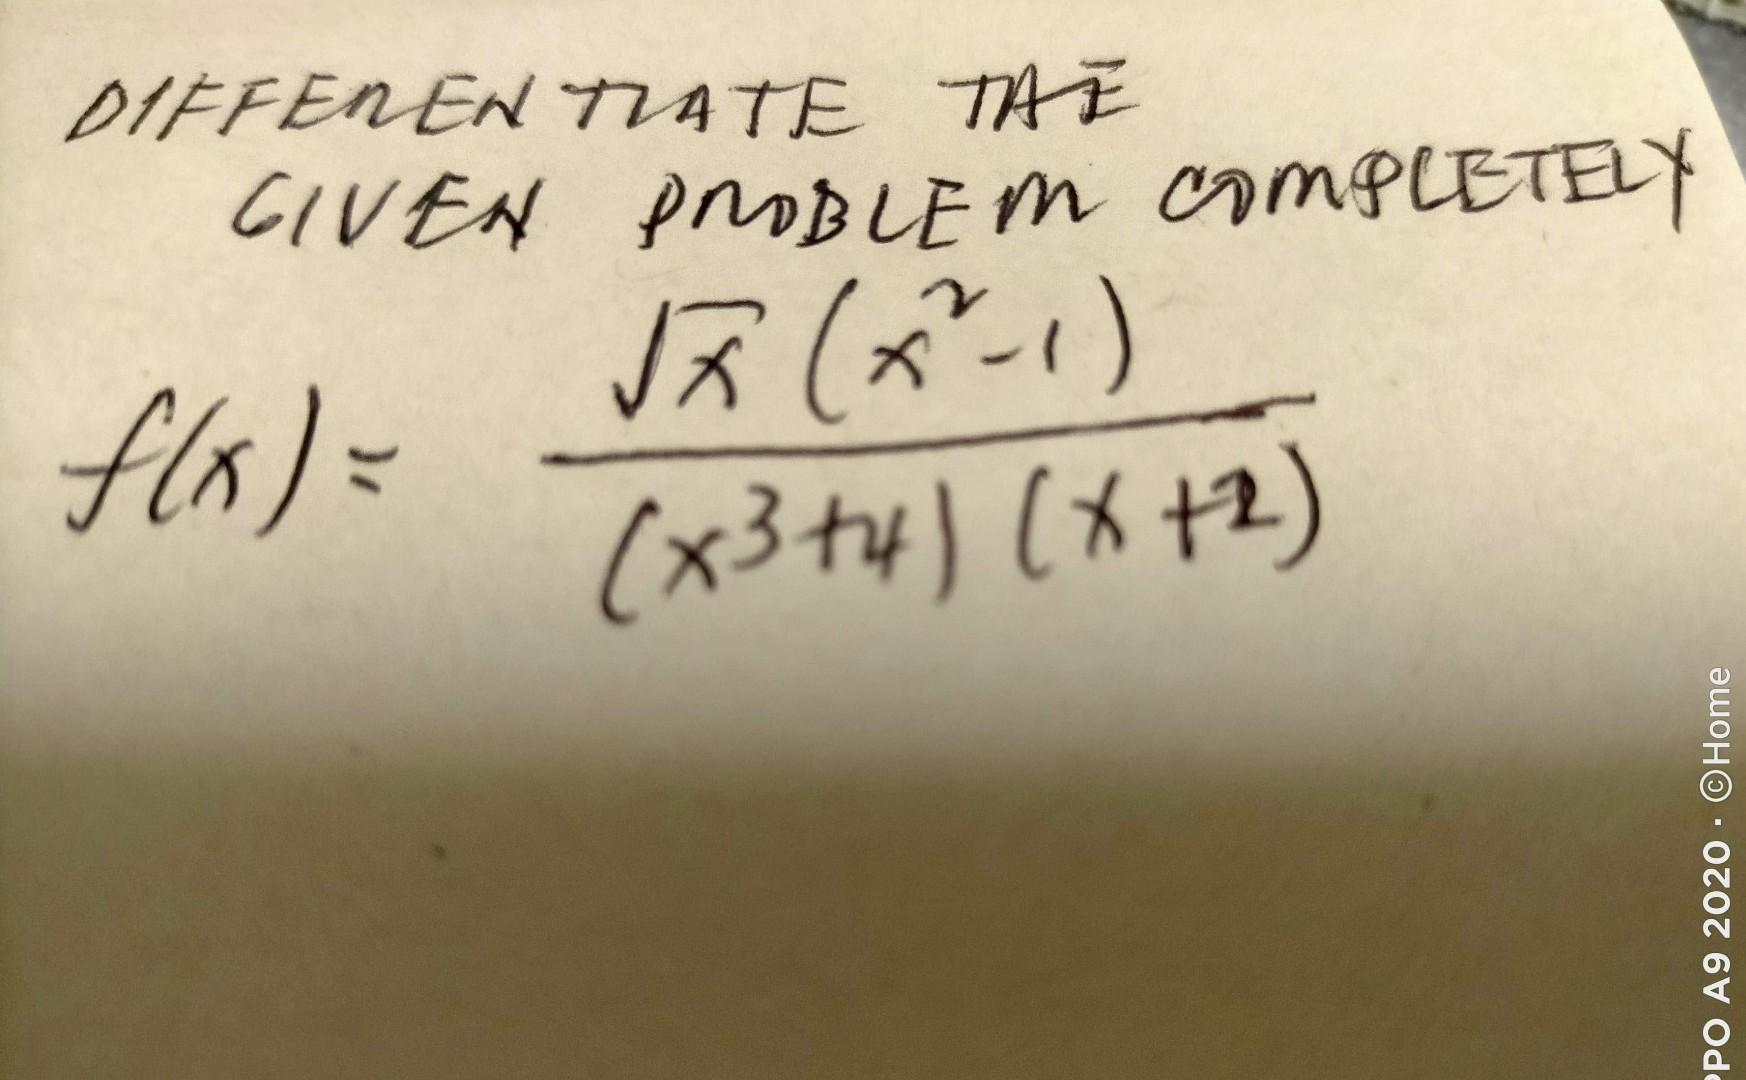 DIFFERENTIATE THE
GIVEN PROBLEM COMPLETELY
f(x) = √x (x²-1)
(x³+4) (x+2)
PPO A9 2020 · ©Home